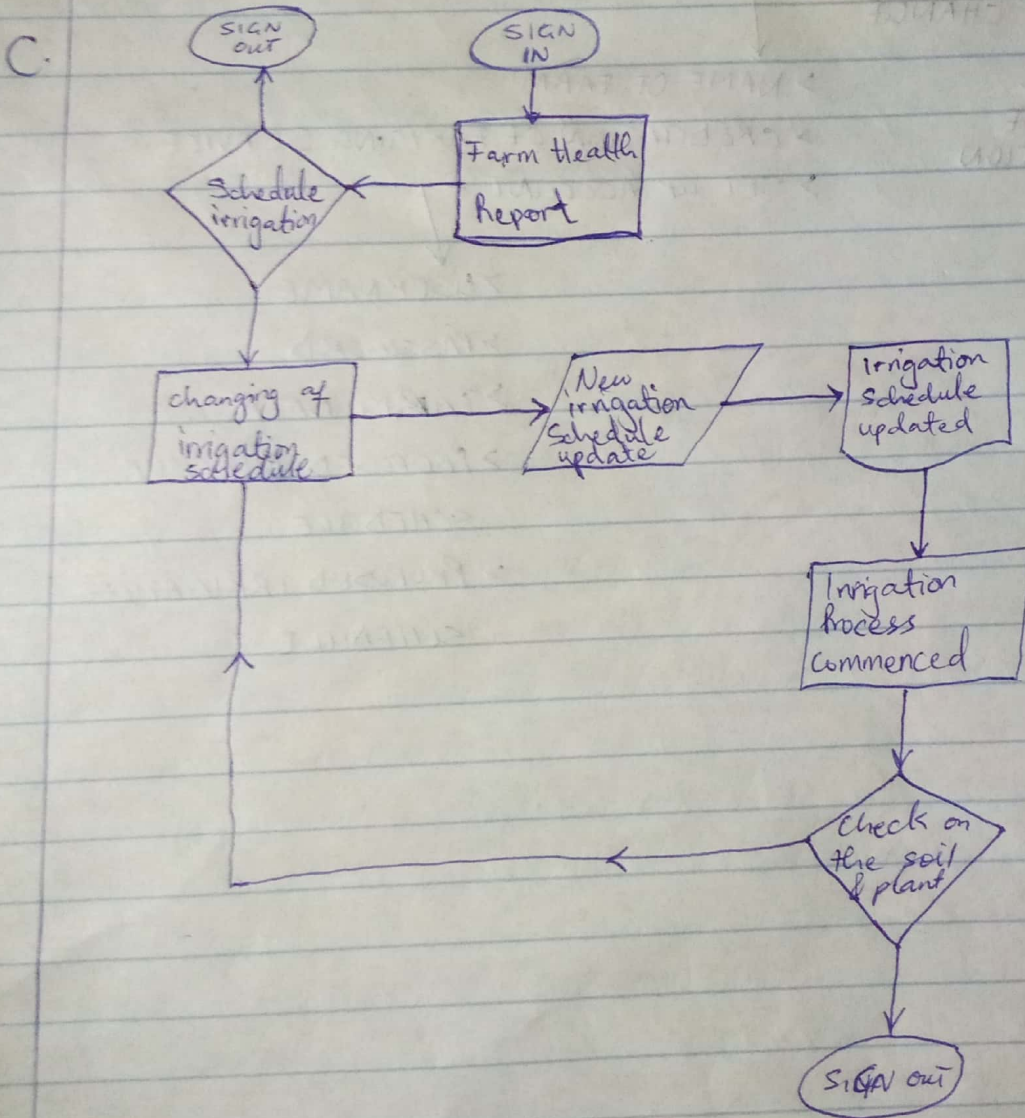 C.
SIGN
OUT
SIGN
IN
Farm Health
Report
Schedule
irrigation
changing of
irrigation
schedule
New
irrigation
Schedule
update
irrigation
Schedule
updated
Irrigation
Process
Commenced
Check on
the soil
& plant
SIGN OUT